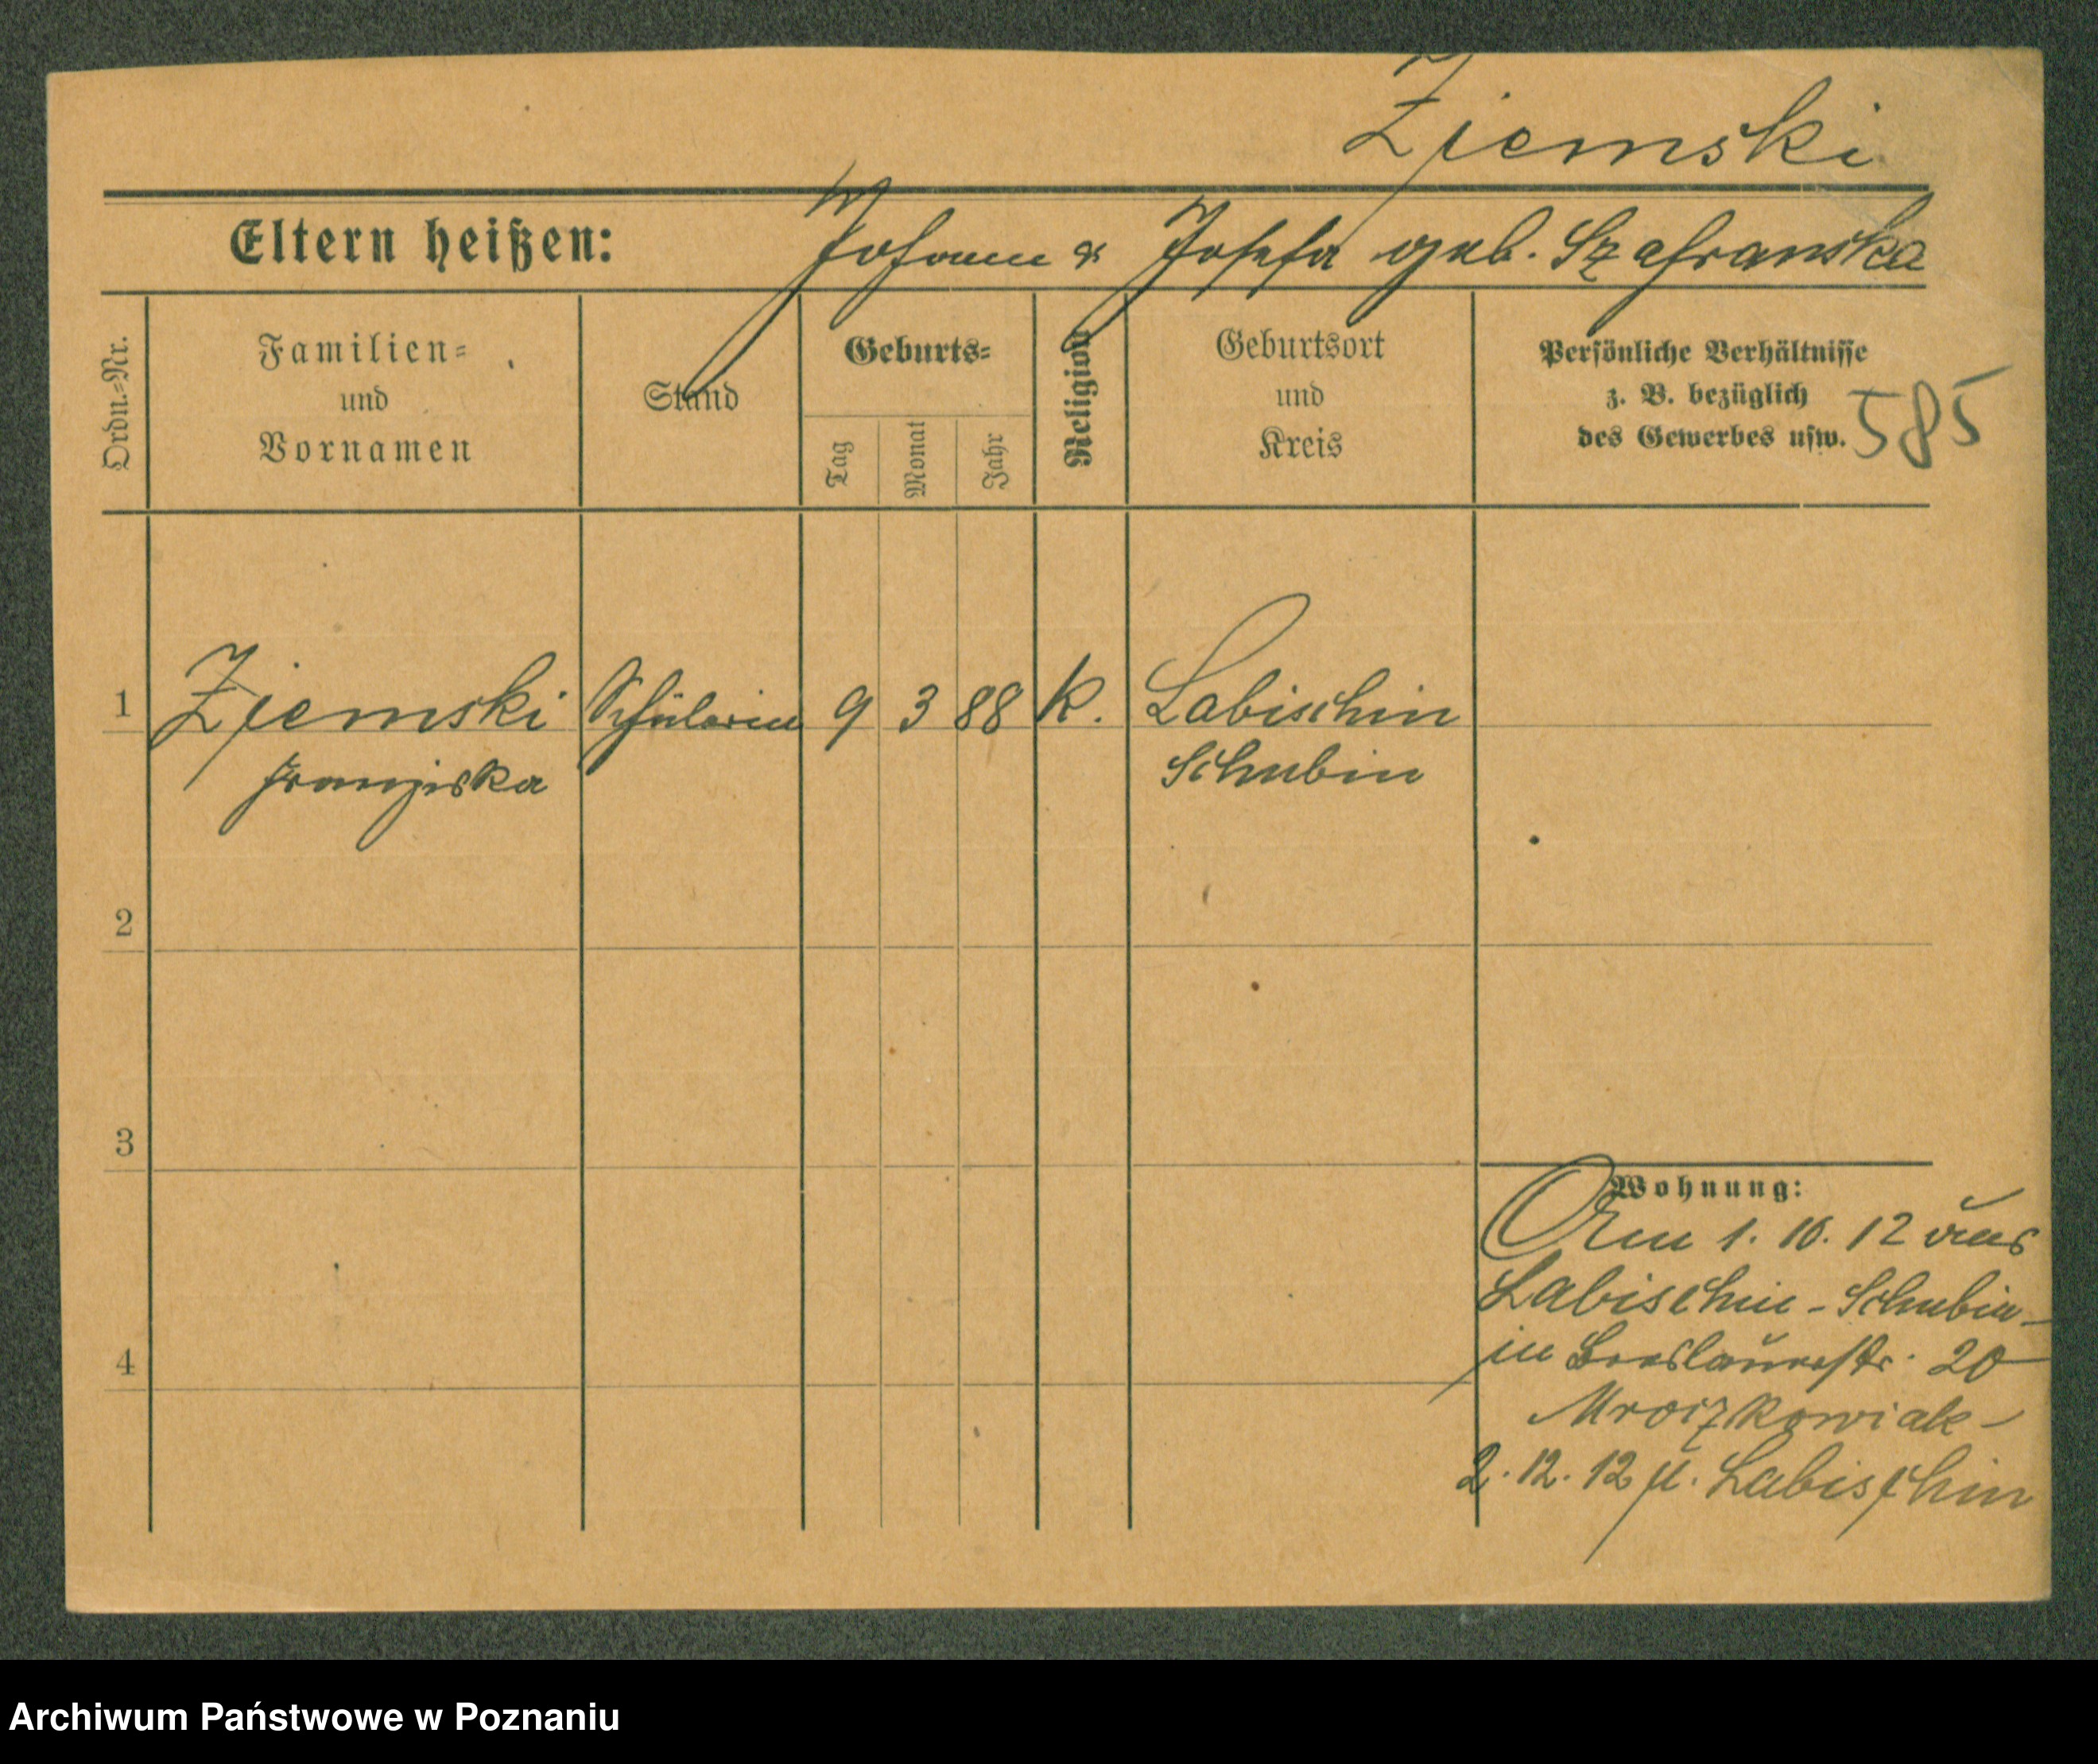 Ziemski
Eltern heißen: Johann & Josefa geb. Szafranska
Ordn.=Nr.
Familien=
und
Vornamen
Stand
Geburts=
Tag
Monat
Jahr
Religion
Geburtsort
und
Kreis
Persönliche Verhältnisse
z. B. bezüglich
des Gewerbes usw.
585
1 Ziemski Schülerin 9 3 88 K. Labischin
Franziska Schubin
2
3
4
Wohnung:
Am 1. 10. 12 aus
Labischin - Schubin -
in Breslauerstr. 20
2. 12. 12 n. Labischin
Archiwum Państwowe w Poznaniu